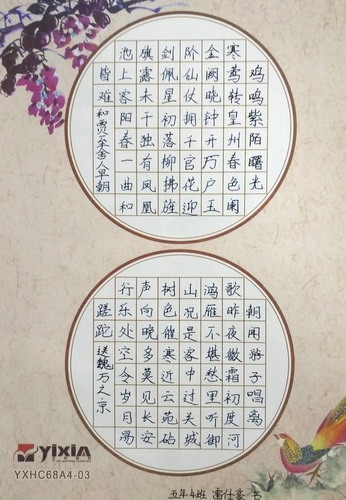 鸡鸣紫陌曙光
寒莺转皇州春色阑
金阙晓钟开万户玉
阶仙仗拥千官花迎
剑佩星初落柳拂旌
旗露未干独有凤凰
池上客阳春一曲和
皆难 和贾至舍人早朝
朝闻游子唱离
歌昨夜微霜初度河
鸿雁不堪愁里听御
山况是客中过关城
树色催寒近云苑砧
声向晚多莫见长安
行乐处空令岁月易
蹉跎 送魏万之京
yixin
YXHC68A4-03
五年4班 雷仕豪 书